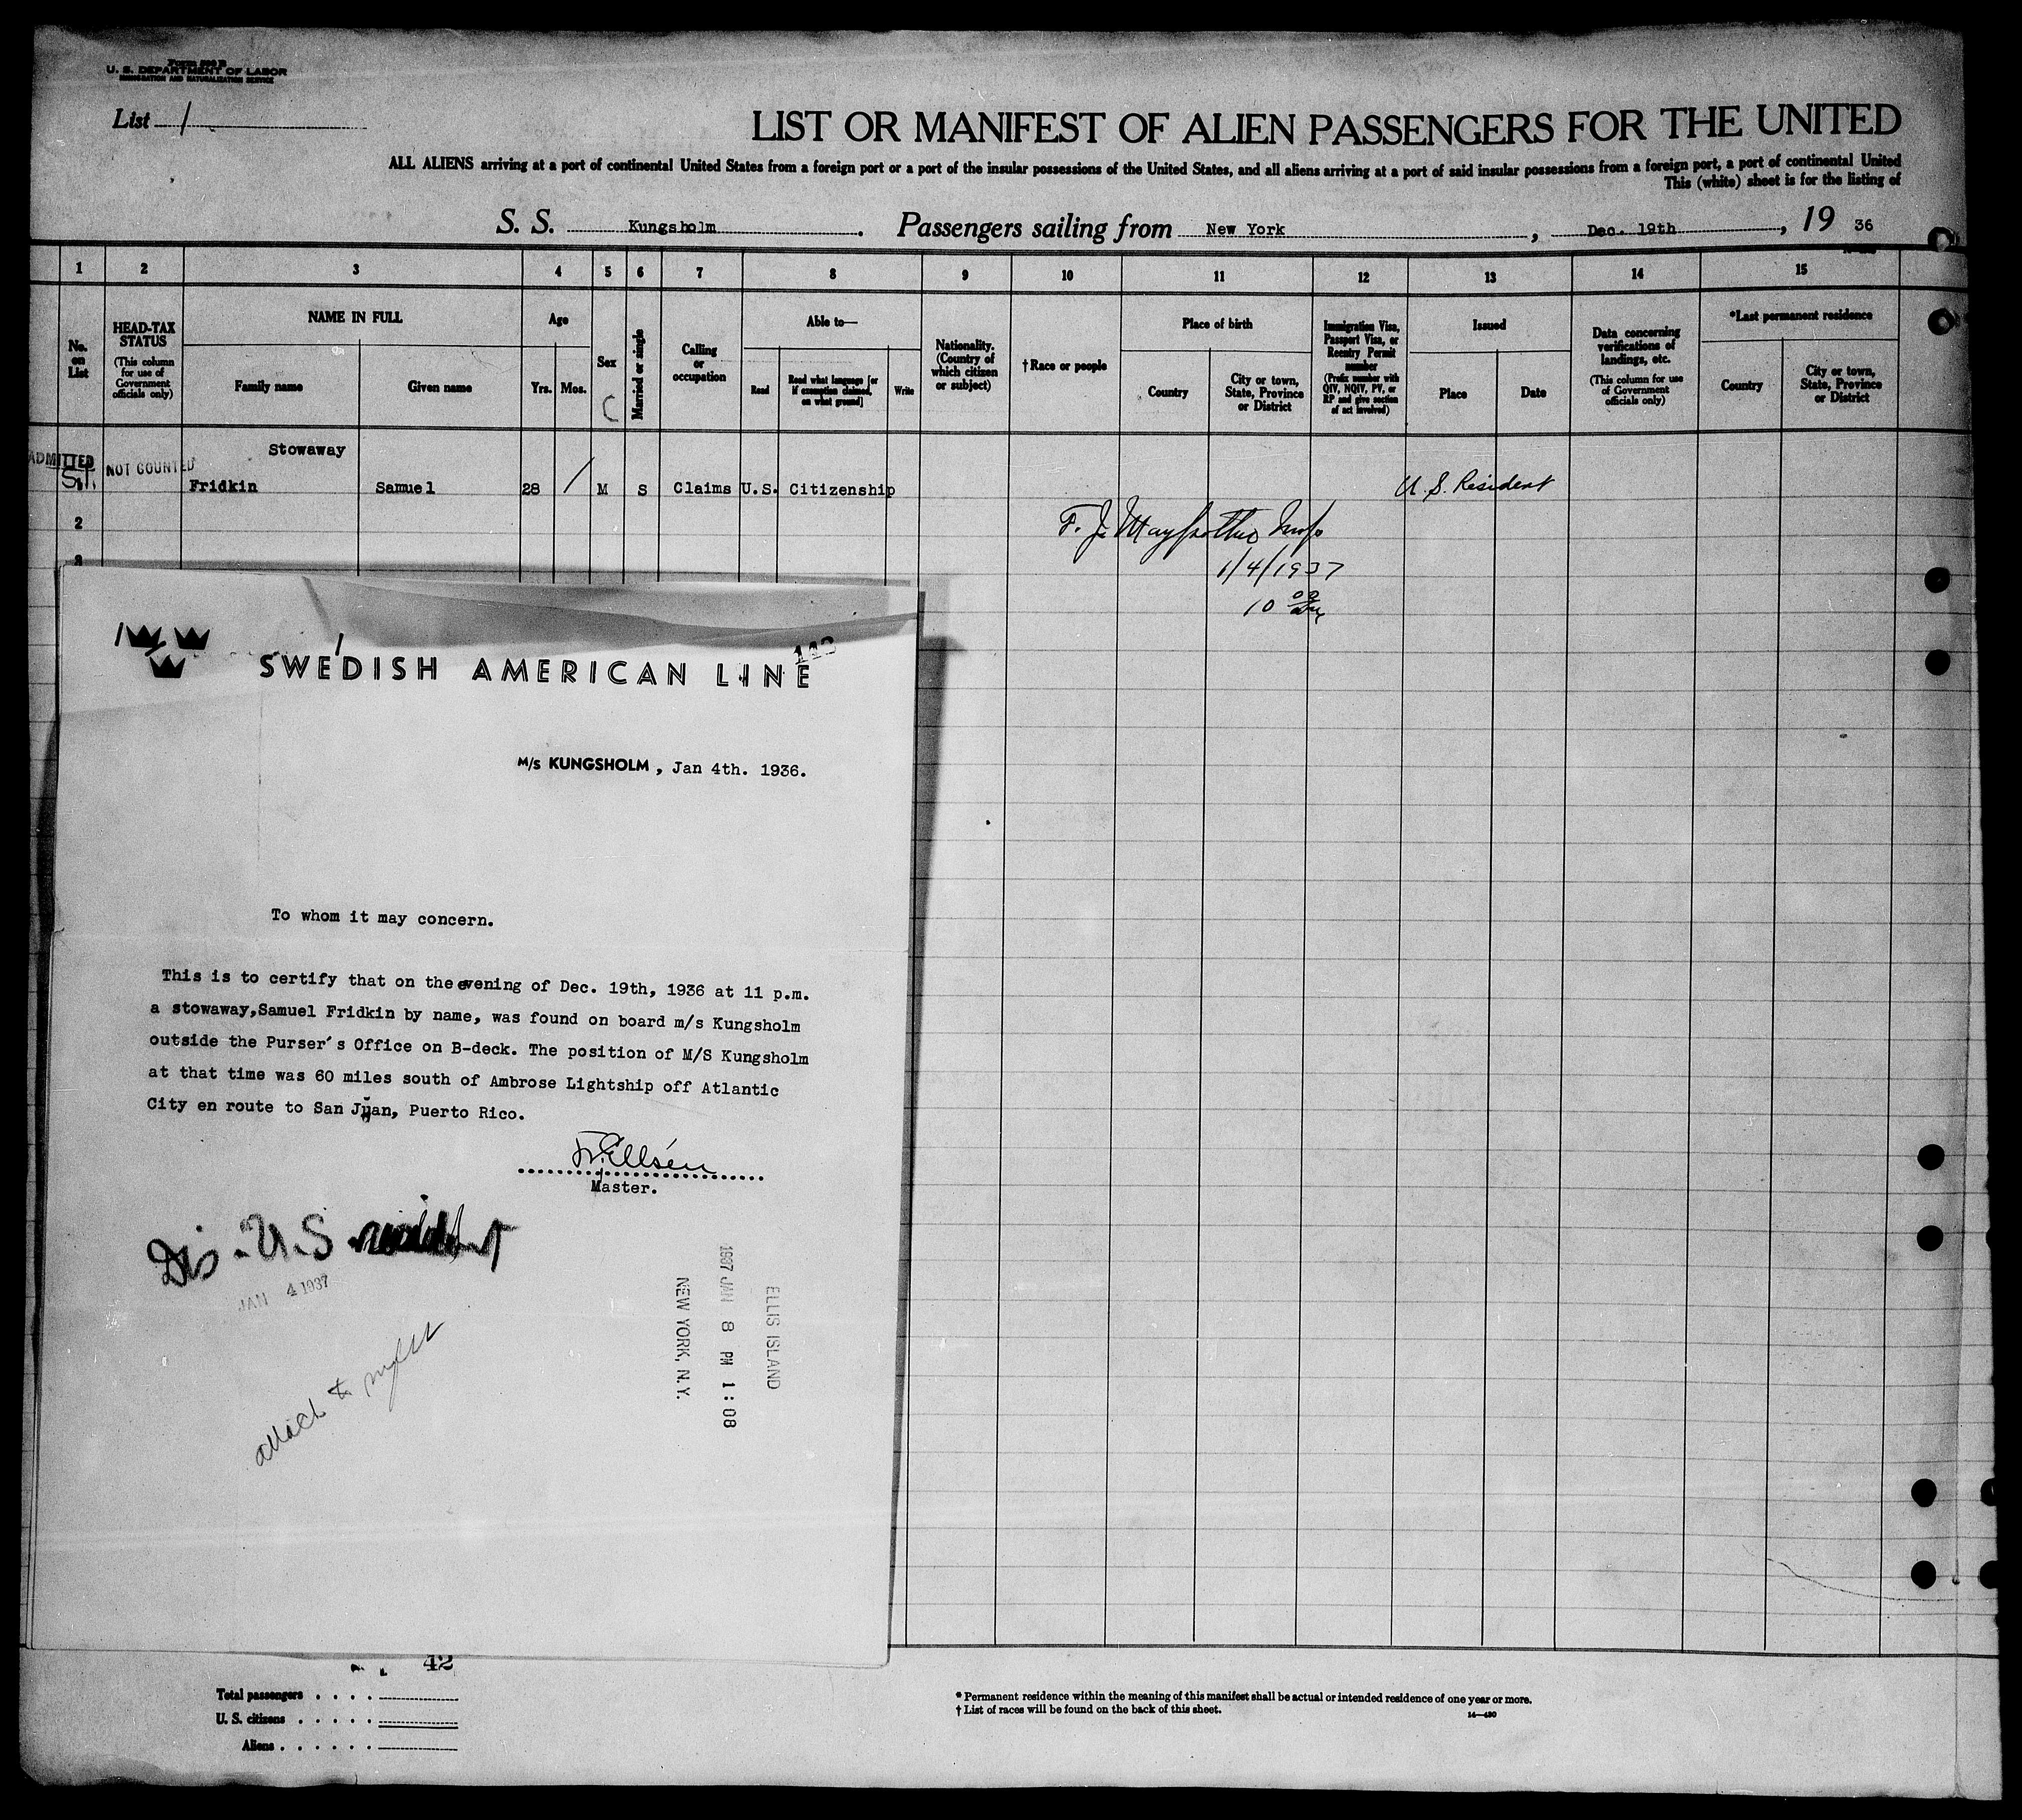 Form 500 B
U. S. DEPARTMENT OF LABOR
IMMIGRATION AND NATURALIZATION SERVICE
List 1
LIST OR MANIFEST OF ALIEN PASSENGERS FOR THE UNITED
ALL ALIENS arriving at a port of continental United States from a foreign port or a port of the insular possessions of the United States, and all aliens arriving at a port of said insular possessions from a foreign port, a port of continental United
This (white) sheet is for the listing of
S. S. Kungsholm. Passengers sailing from New York, Dec. 19th, 19 36
1 2 3 4 5 6 7 8 9 10 11 12 13 14 15
No. on List
HEAD-TAX STATUS
(This column for use of Government officials only)
NAME IN FULL
Family name
Given name
Age
Yrs. Mos.
Sex
Married or single
Calling or occupation
Able to—
Read
Read what language [or if exemption claimed, on what ground]
Write
Nationality. (Country of which citizen or subject)
†Race or people
Place of birth
Country
City or town, State, Province or District
Immigration Visa, Passport Visa, or Reentry Permit number
(Prefix number with QIV, NQIV, PV, or RP and give section of act involved)
Issued
Place
Date
Data concerning verifications of landings, etc.
(This column for use of Government officials only)
*Last permanent residence
Country
City or town, State, Province or District
Stowaway
ADMITTED
NOT COUNTED
Fridkin Samuel 28 / M S Claims U.S. Citizenship U.S. Resident
2
3
1/4/1937
10 00
SWEDISH AMERICAN LINE
M/S KUNGSHOLM, Jan 4th. 1936.
To whom it may concern.
This is to certify that on the evening of Dec. 19th, 1936 at 11 p.m.
a stowaway,Samuel Fridkin by name, was found on board m/s Kungsholm
outside the Purser's Office on B-deck. The position of M/S Kungsholm
at that time was 60 miles south of Ambrose Lightship off Atlantic
City en route to San Juan, Puerto Rico.
Master.
Dis - U.S resident
JAN 4 1937
attach to
ELLIS ISLAND
1937 JAN 8 PM 1:08
NEW YORK, N.Y.
42
Total passengers
U. S. citizens
Aliens
* Permanent residence within the meaning of this manifest shall be actual or intended residence of one year or more.
† List of races will be found on the back of this sheet.
14—430